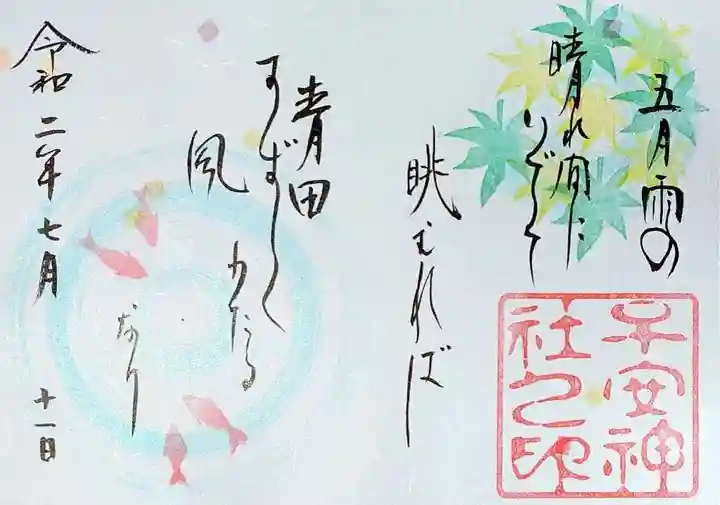 五月雨の
晴れ間に
いでて
眺むれば
青田
すずしく
風
わたる
なり
令和二年七月
十一日
子安神
社之印